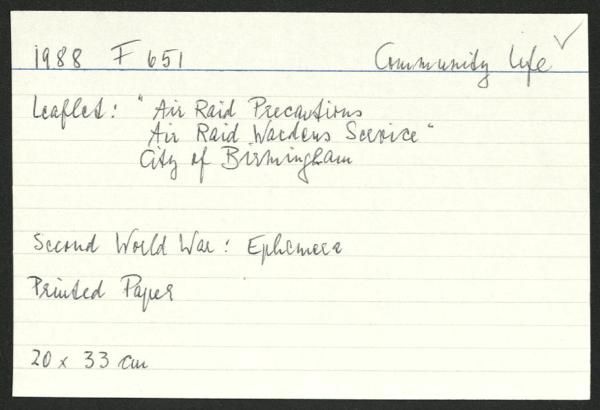 1988 F 651 Community Life
Leaflet: "Air Raid Precautions
Air Raid Wardens Service"
City of Birmingham
Second World War: Ephemera
Printed Paper
20 x 33 cm